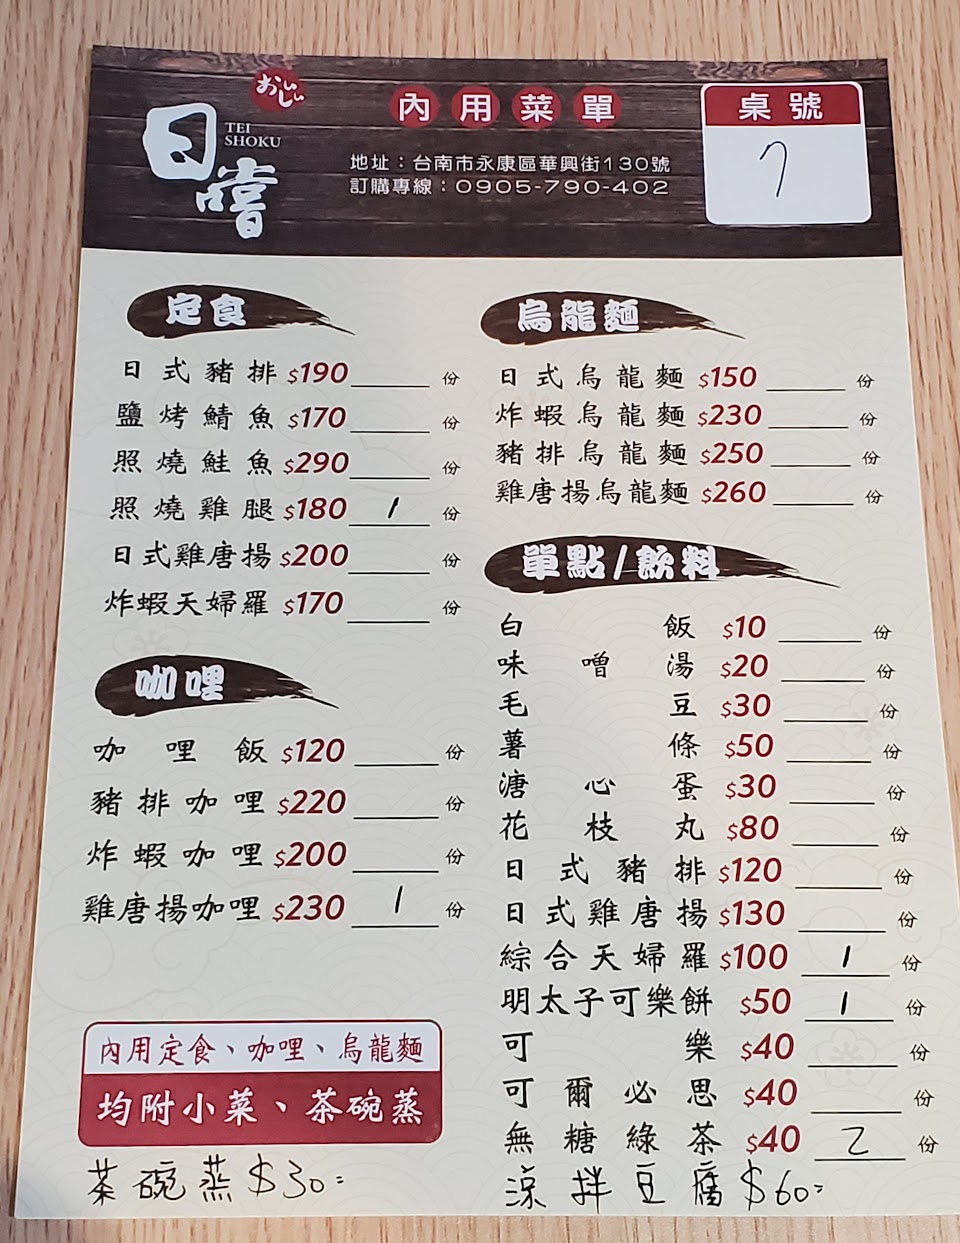 おいしい
日嚐
TEI
SHOKU
內用菜單
地址：台南市永康區華興街130號
訂購專線：0905-790-402
桌號
7
定食
日式豬排 $190 份
鹽烤鯖魚 $170 份
照燒鮭魚 $290 份
照燒雞腿 $180 1 份
日式雞唐揚 $200 份
炸蝦天婦羅 $170 份
咖哩
咖哩飯 $120 份
豬排咖哩 $220 份
炸蝦咖哩 $200 份
雞唐揚咖哩 $230 1 份
內用定食、咖哩、烏龍麵
均附小菜、茶碗蒸
茶碗蒸 $30=
烏龍麵
日式烏龍麵 $150 份
炸蝦烏龍麵 $230 份
豬排烏龍麵 $250 份
雞唐揚烏龍麵 $260 份
單點/飲料
白飯 $10 份
味噌湯 $20 份
毛豆 $30 份
薯條 $50 份
溏心蛋 $30 份
花枝丸 $80 份
日式豬排 $120 份
日式雞唐揚 $130 份
綜合天婦羅 $100 1 份
明太子可樂餅 $50 1 份
可樂 $40 份
可爾必思 $40 份
無糖綠茶 $40 2 份
涼拌豆腐 $60=